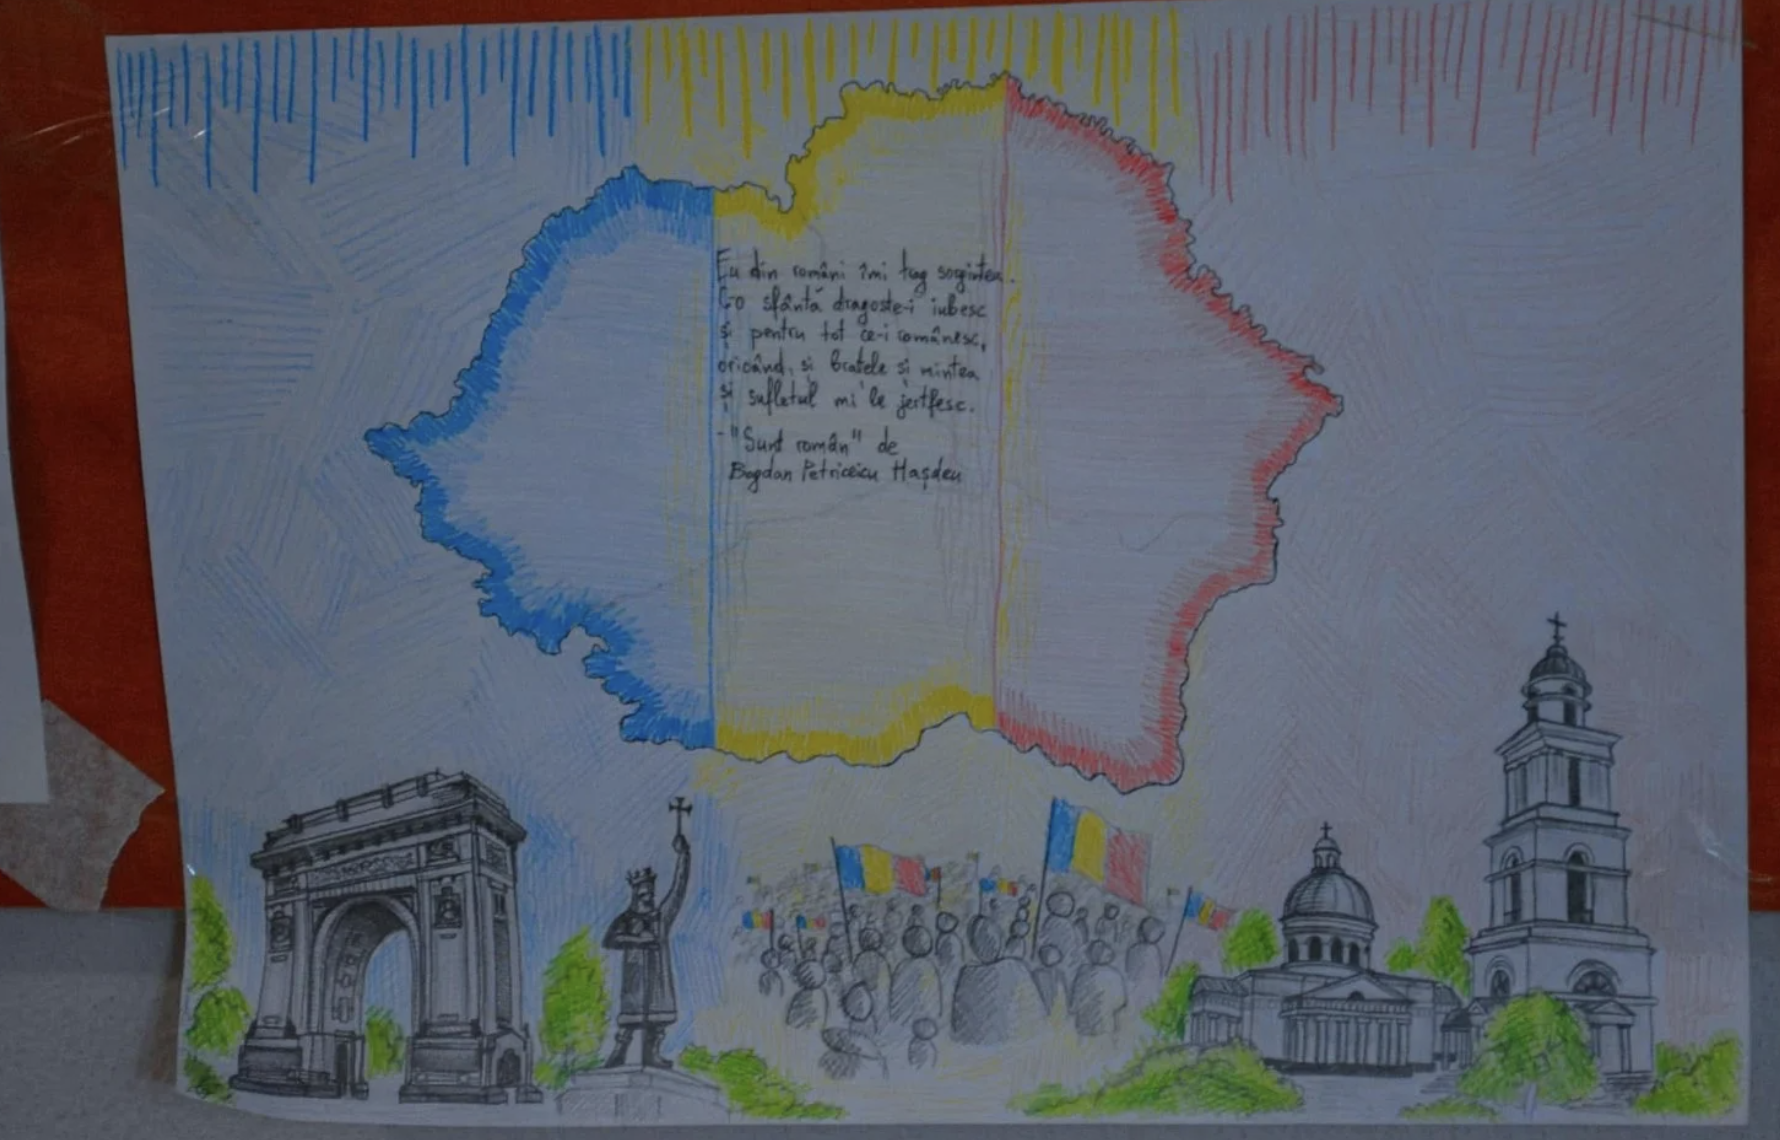 Eu din români îmi trag sorgintea.
C-o sfântă dragoste-i iubesc
și pentru tot ce-i românesc,
oricând, și bratele și mintea
și sufletul mi le jertfesc.
-"Sunt român" de
Bogdan Petriceicu Hașdeu